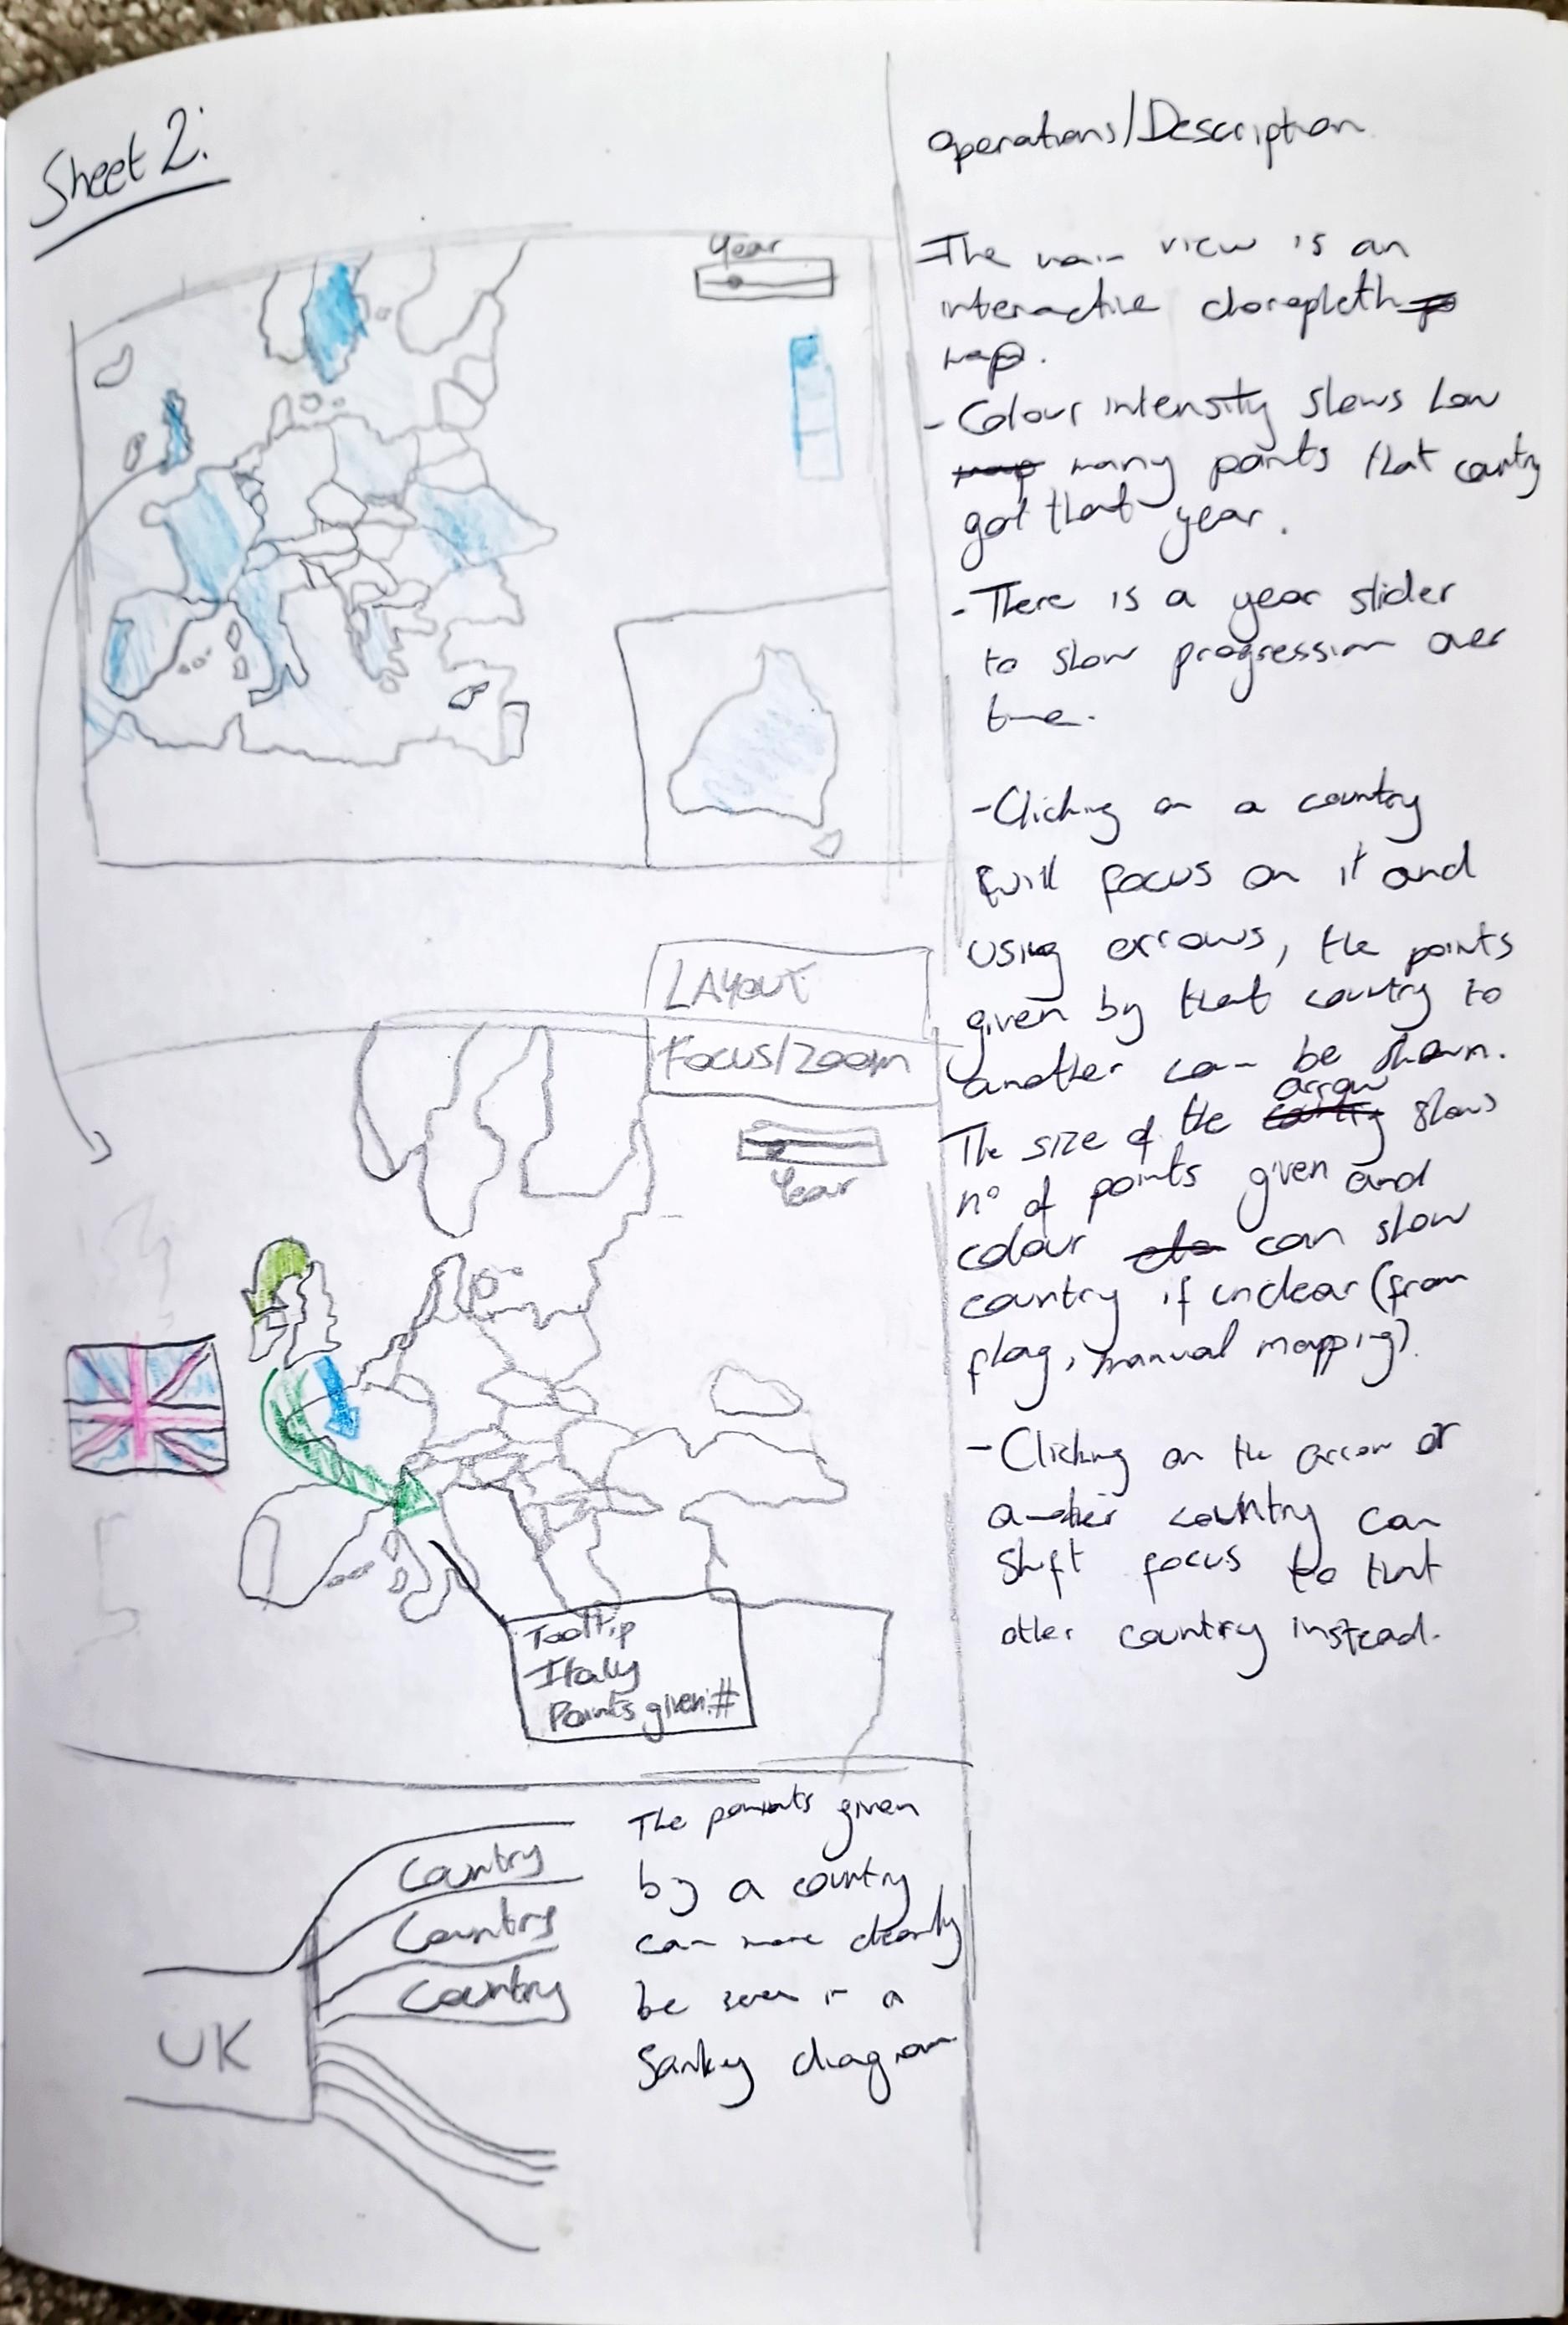 Sheet 2:
Year
LAYOUT
Focus/Zoom
Year
Tooltip
Italy
Points given:#
Country
Country
Country
UK
The points given
by a country
can more clearly
be seen in a
Sankey diagram
Operations/Description
The main view is an
interactive choropleth
map.
- Colour intensity shows how
map many points that country
got that year.
- There is a year slider
to show progression over
time.
- Clicking on a country
will focus on it and
using arrows, the points
given by that country to
another can be shown.
The size of the country arrow shows
nº of points given and
colour can show
country if unclear (from
flag, manual mapping).
- Clicking on the arrow or
another country can
shift focus to that
other country instead.